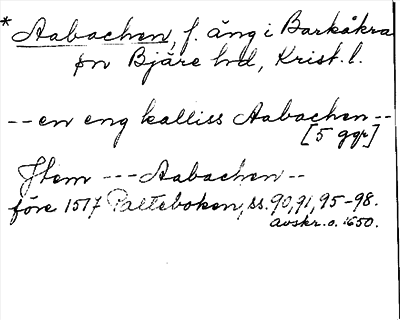 * Aabachen, f. äng i Barkåkra
sn Bjäre hd, Krist. l.
-- en eng kalliss Aabachen --
[5 ggr]
Jtem --- Aabachen --
före 1517 Palteboken, ss. 90, 91, 95-98.
avskr. o. 1650.